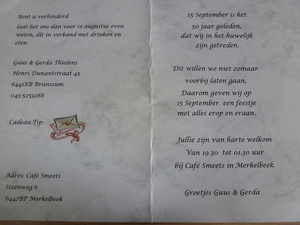 Bent u verhinderd
laat het ons dan voor 15 augustus even
weten, dit in verband met drinken en
eten.
Guus & Gerda Thielens
Henri Dunantstraat 45
6441XB Brunssum
045-5253288
Cadeau Tip:
Adres: Café Smeets
Steenweg 6
6447BP Merkelbeek
15 September is het
50 jaar geleden,
dat wij in het huwelijk
zijn getreden.
Dit willen we niet zomaar
voorbij laten gaan,
Daarom geven wij op
15 September een feestje
met alles erop en eraan.
Jullie zijn van harte welkom
Van 19.30 tot 01.30 uur
bij Café Smeets in Merkelbeek.
Groetjes Guus & Gerda